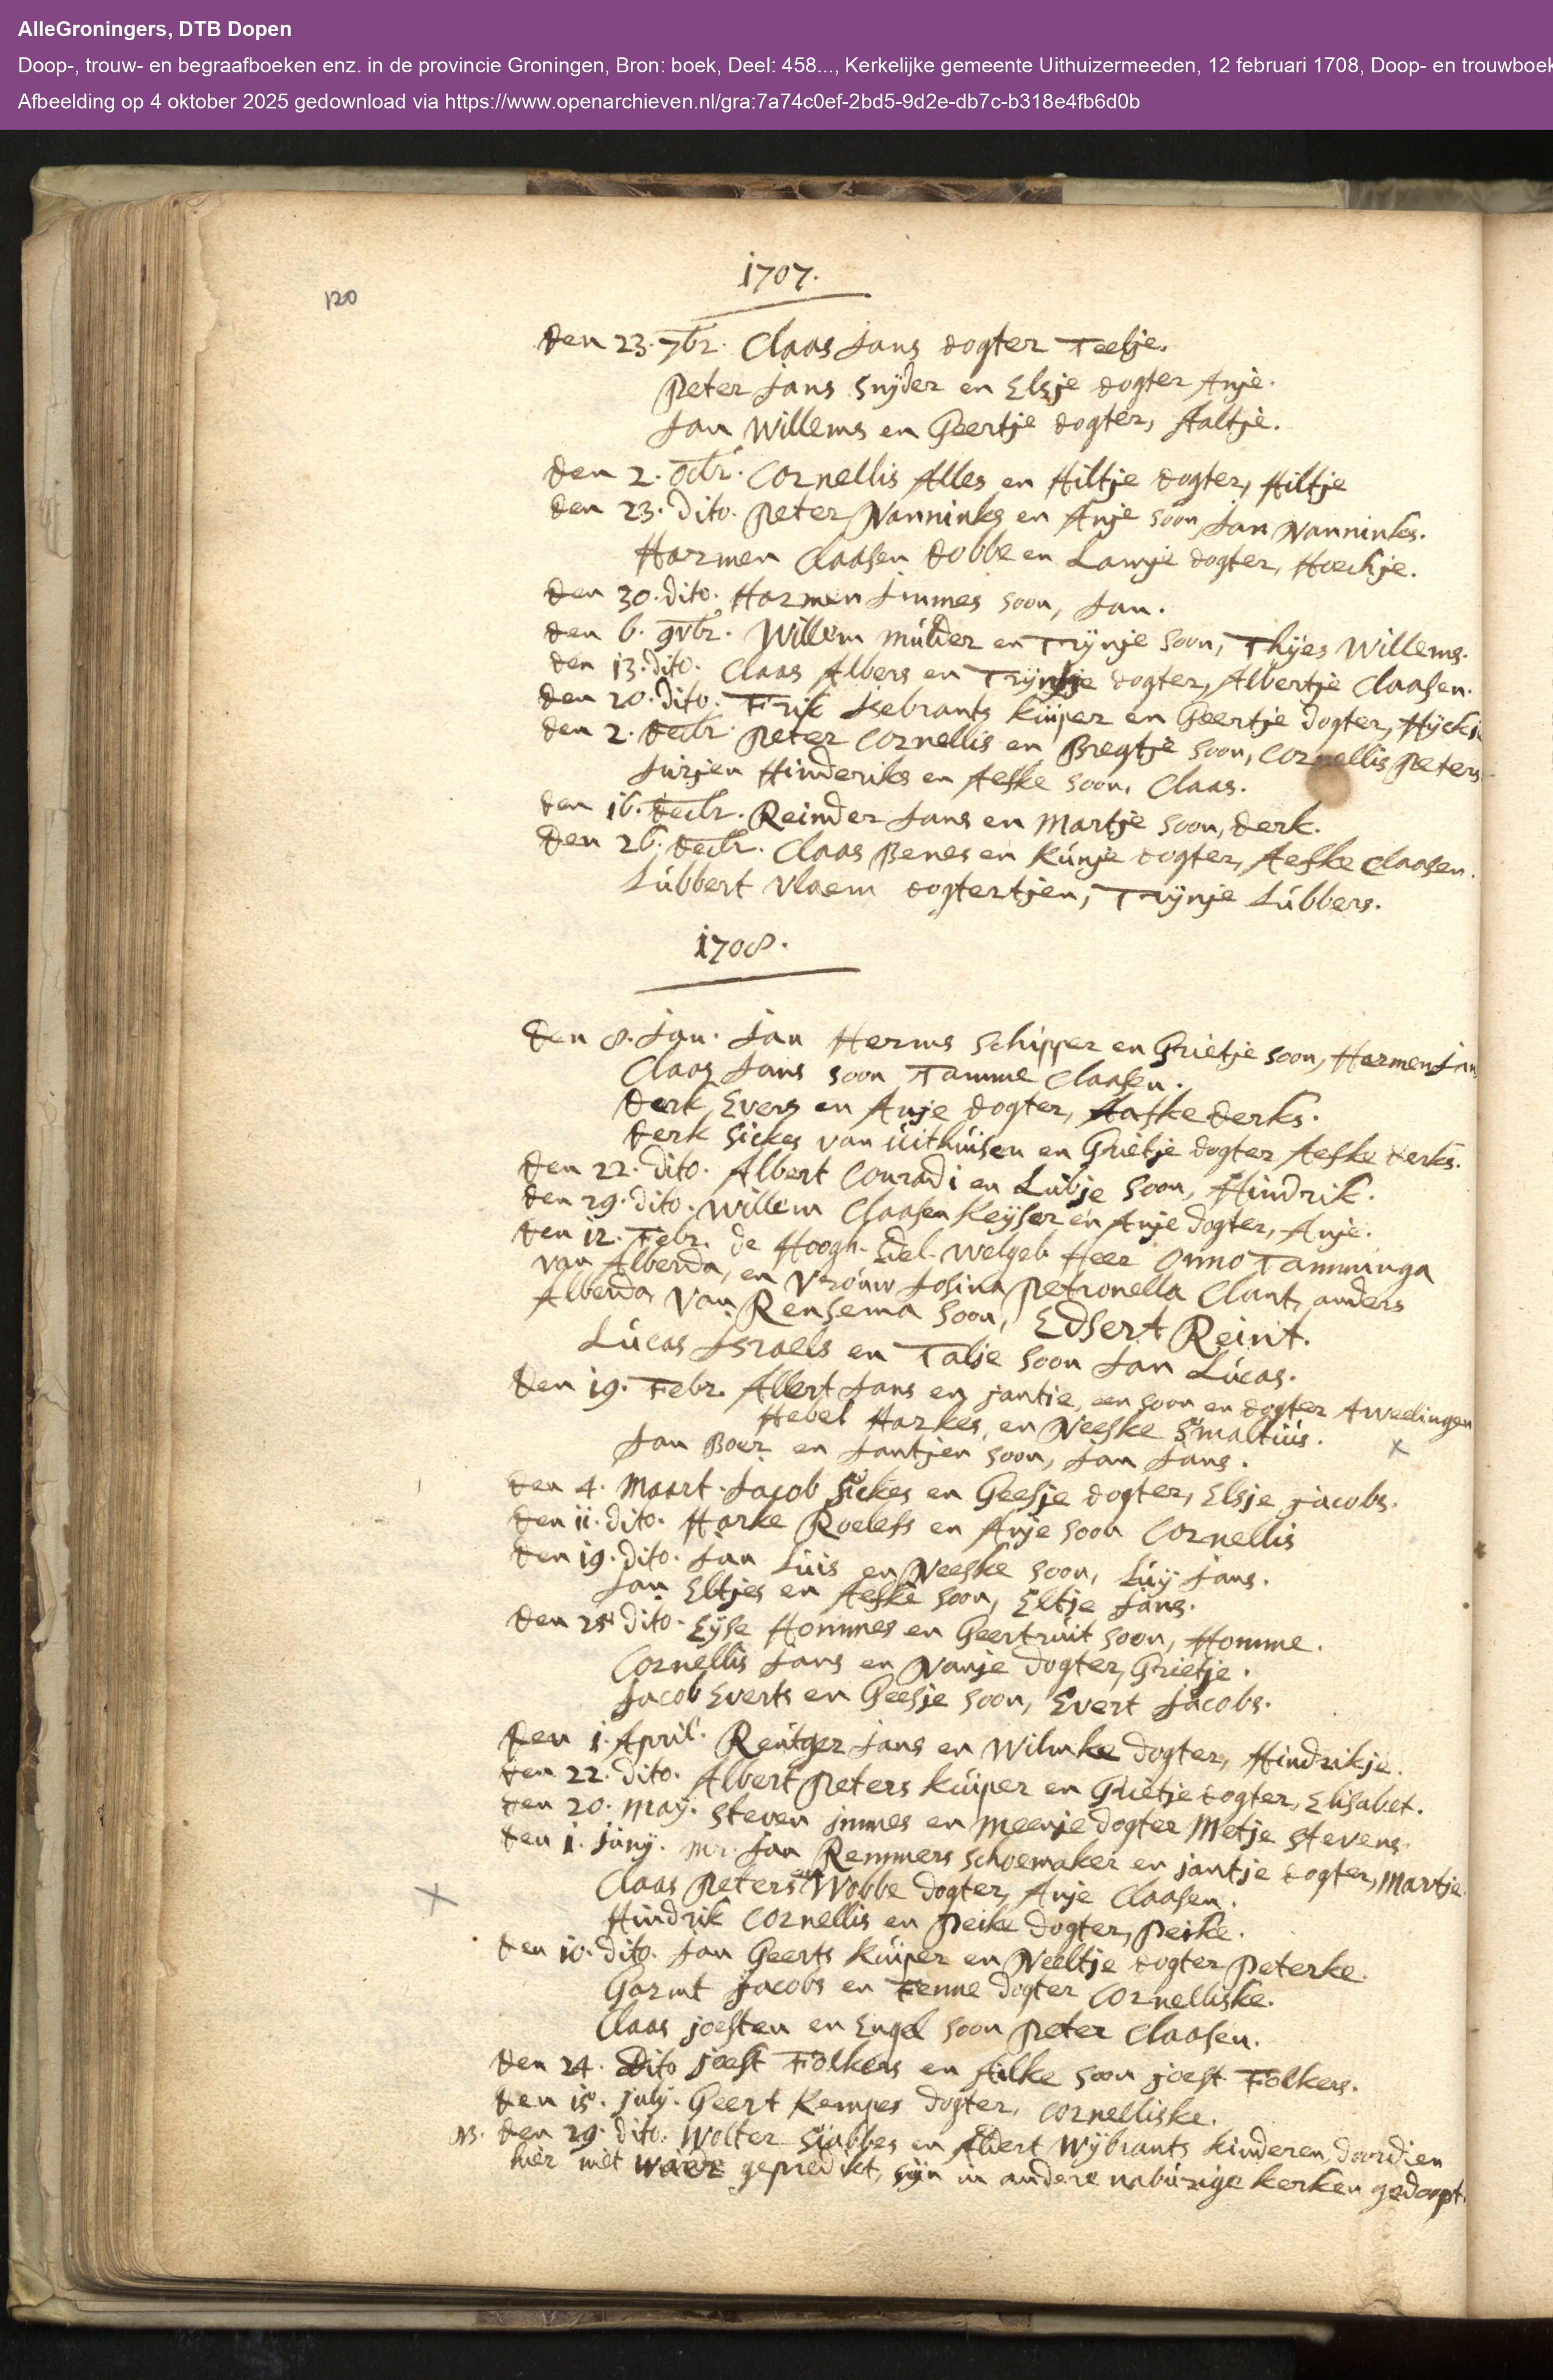 AlleGroningers, DTB Dopen
Doop-, trouw- en begraafboeken enz. in de provincie Groningen, Bron: boek, Deel: 458..., Kerkelijke gemeente Uithuizermeeden, 12 februari 1708, Doop- en trouwboek
Afbeelding op 4 oktober 2025 gedownload via https://www.openarchieven.nl/gra:7a74c0ef-2bd5-9d2e-db7c-b318e4fb6d0b
120
1707.
Den 23. 7br. Claas Jans dogter Teetje.
Peter Jans Snyder en Elsje dogter Anje.
Jan Willems en Geertje dogter, Aaltje.
Den 2. Octbr. Cornellis Alles en Hiltje dogter, Hiltje
Den 23. dito. Peter Nanninks en Anje soon Jan Nanninks.
Harmen Claasen Dobbe en Lamje dogter, Hoeckje.
Den 30. dito. Harmen Jimmes soon, Jan.
Den 6. 9vbr. Willem Mulder en Trynje soon, Thyes Willems.
Den 13. dito. Claas Albers en Tryntje dogter, Albertje Claasen.
Den 20. dito. Frik Isebrants Kuiper en Geertje dogter, Hyckje
Den 2. Decbr Peter Cornellis en Bregtje soon, Cornellis Peters
Jurjen Hinderiks en Aefke soon, Claas.
Den 16. Decbr. Reinder Jans en Martje soon, Derk.
Den 26. Decbr. Claas Benes en Kunje dogter, Aefke Claasen.
Lubbert Vlaem dogtertjen, Trynje Lubbers.
1708.
Den 8. Jan. Jan Herms Schipper en Grietje soon, Harmen Jans
Claas Jans soon Tamme Claasen.
Derk Evers en Anje dogter, Aafke Derks.
Derk Sickes van Uithuisen en Grietje dogter Aefke Derks.
Den 22. dito. Albert Conradi en Lubje soon, Hindrik.
Den 29. dito. Willem Claasen Keyser en Anje dogter, Anje.
Den 12. Febr. de Hoogh-Edel-welgeb. Heer Onno Tamminga
van Alberda, en Vrouw Josina Petronella Clant, anders
Alberda van Rensema soon, Edsert Reint.
Lucas Israels en Talje soon Jan Lucas.
Den 19. Febr. Albert Jans en jantje, een soon en dogter tweelingen
Hebel Harkes, en Neeske Smaltius.
Jan Boer en Jantjen soon, Jan Jans.
Den 4. Maart. Jacob Sickes en Geesje dogter, Elsje jacobs.
Den 11. dito. Harke Roelefs en Anje soon Cornellis
Den 19. dito. Jan Luis en Neeske soon, Luy Jans.
Jan Eltjes en Aefke soon, Eltje Jans.
Den 25 dito. Eyse Hommes en Geertruit soon, Homme.
Cornellis Jans en Nanje dogter, Grietje.
Jacob Everts en Geesje soon, Evert Jacobs.
Den 1. April. Rentger Jans en Wilmke dogter, Hindrikje.
Den 22. dito. Albert Peters Kuiper en Grietje dogter, Elisabet.
Den 20. May. Steven jmmes en Meenje dogter Metje Stevens.
Den 1. Juny. Mr. Jan Remmers Schoemaker en jantje dogter, Martje.
Claas Peters en Wobbe dogter, Anje Claasen.
Hindrik Cornellis en Peike dogter, Peike.
Den 10. dito. Jan Geerts Kuiper en Neeltje dogter Peterke.
Garmt Jacobs en Fenne dogter Cornelliske.
Claas joesten en Engel soon Peter Claasen.
Den 24. Dito joest Folkers en Hilke soon joest Folkers.
Den 15. july. Geert Kempes dogter, Cornelliske.
NB. Den 29. dito. Wolter Siabbes en Albert Wybrants kinderen, doordien
hier niet wierde gepredikt, syn in andere naburige kerken gedoopt.